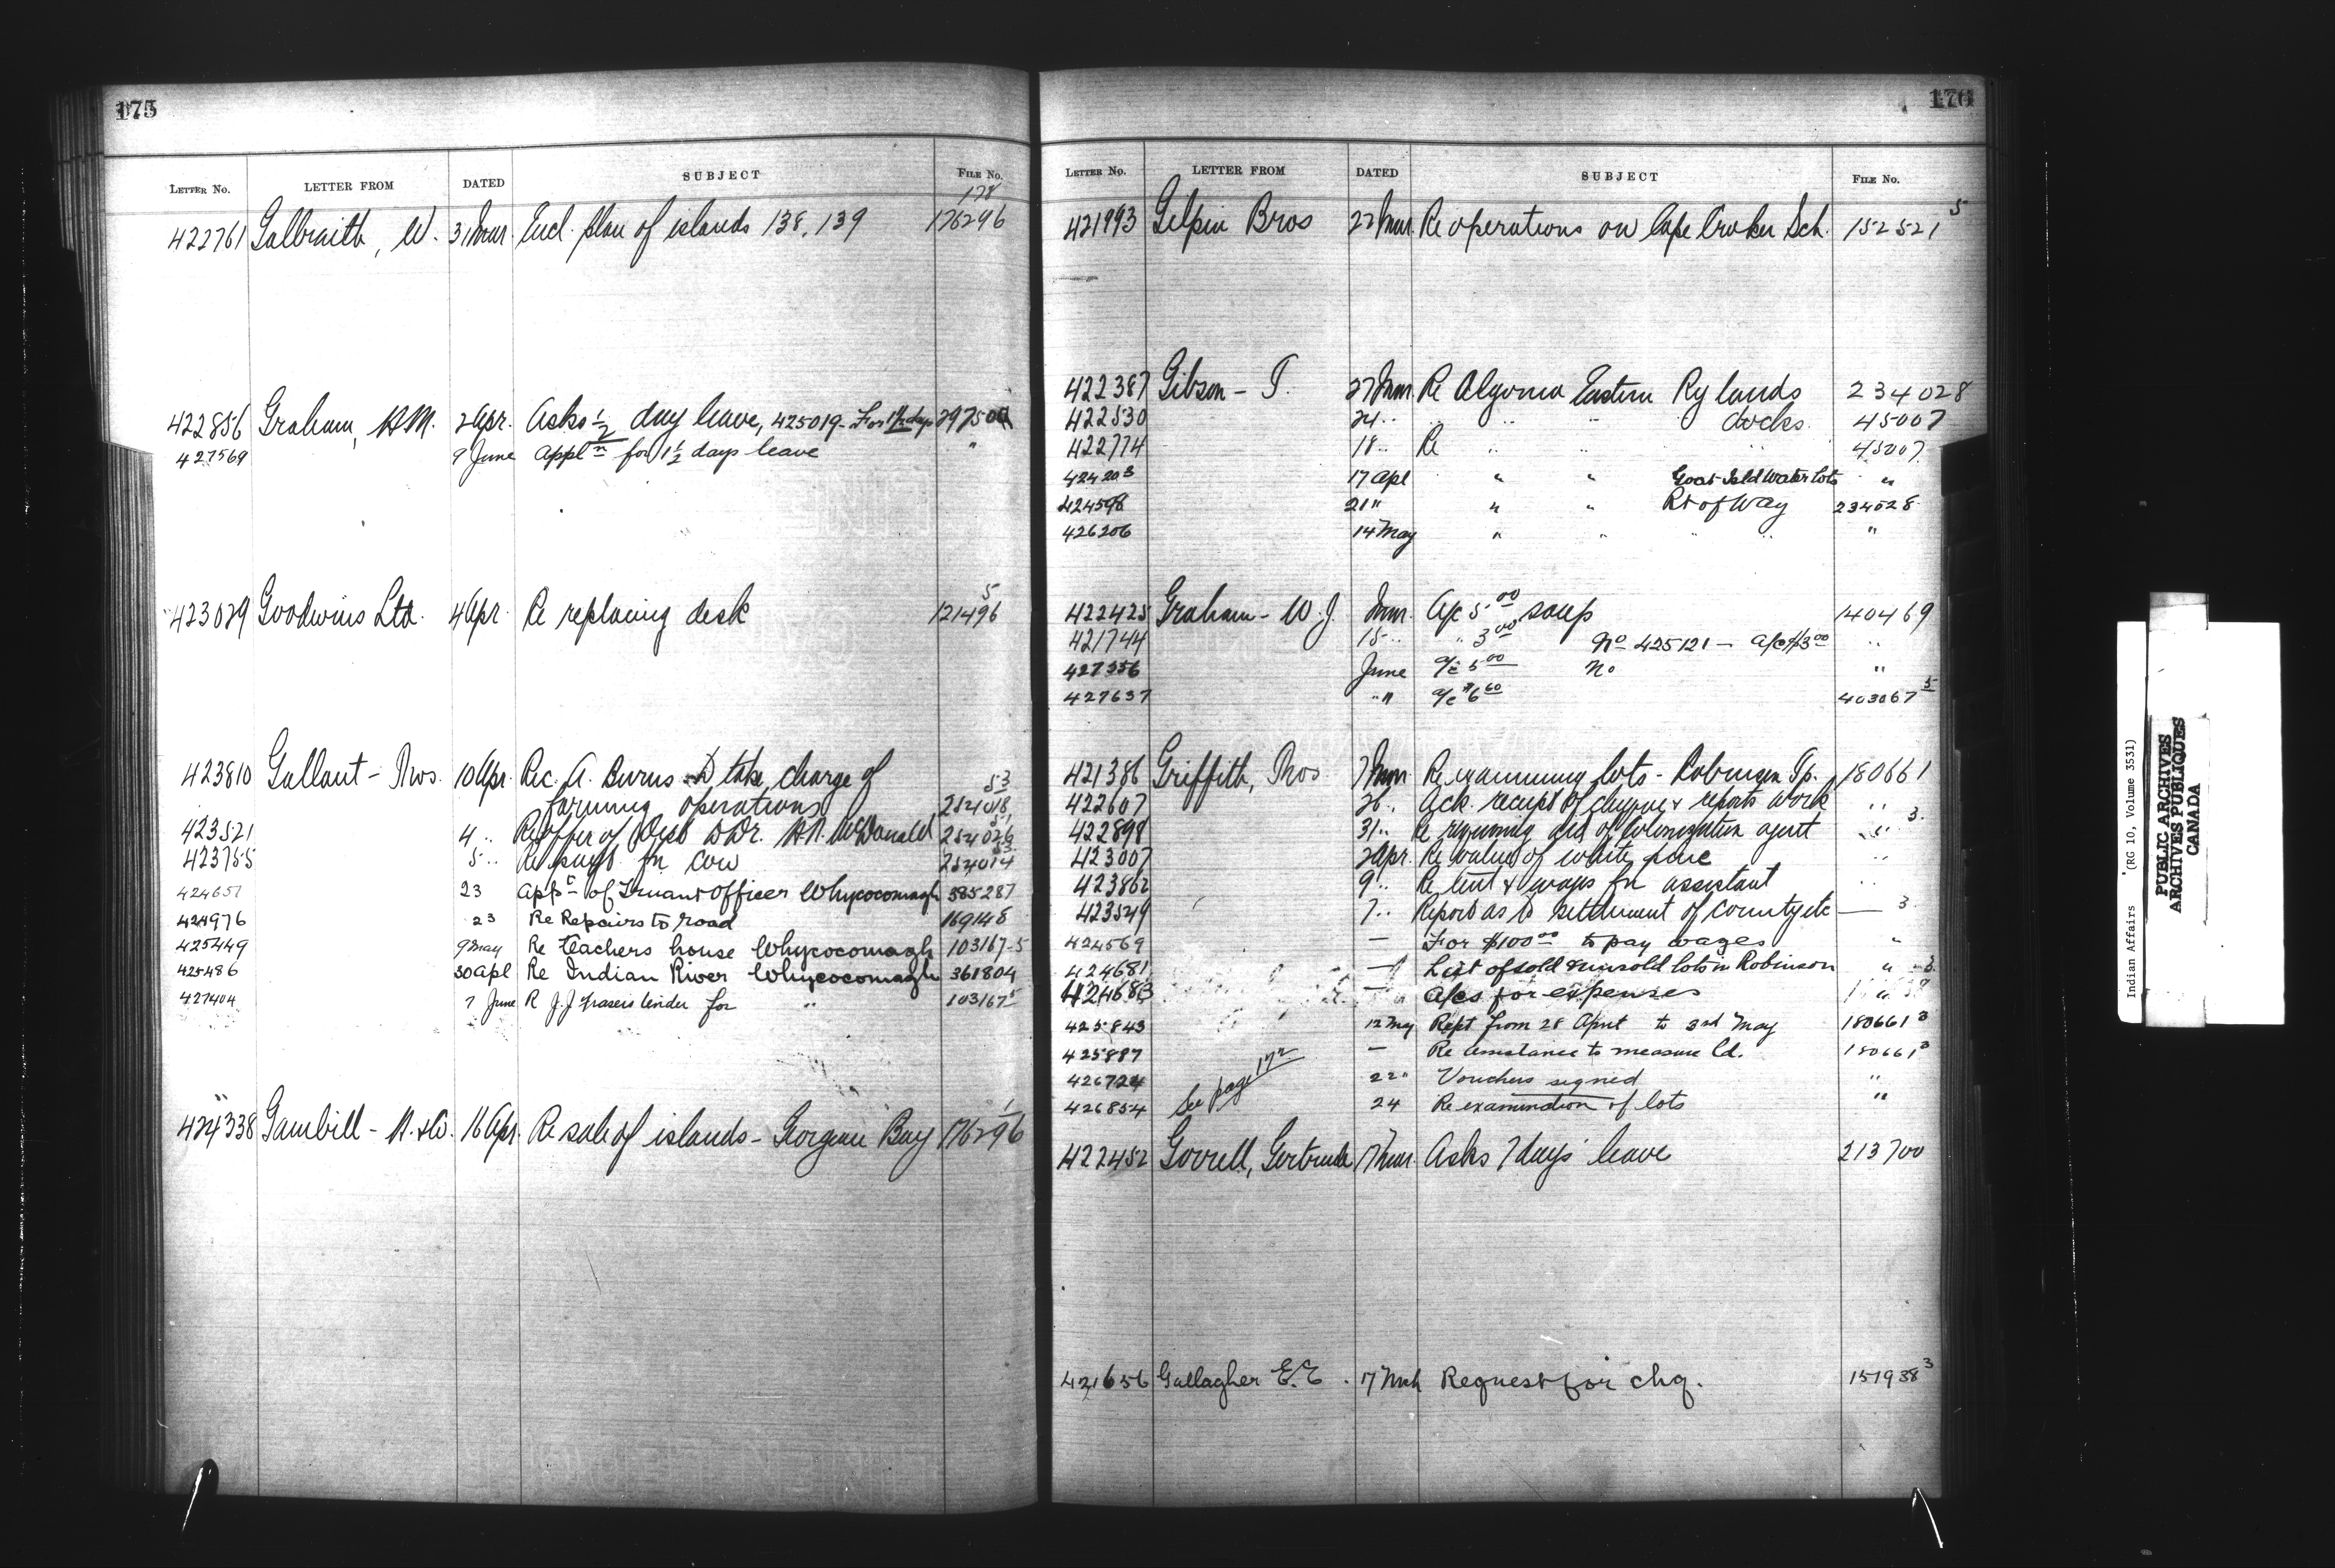 175
LETTER NO. LETTER FROM DATED SUBJECT FILE No.
178
422761 Galbraith, W. 31 Mar. Encl. plan of islands 138, 139 176296
422856 Graham, 2 Apr. Asks 1/2 day leave, 425019 - For 1 1/2 days 297500
427569 9 June Appln for 1 1/2 days leave "
423029 Goodwins Ltd. 4 Apr. Re replacing desk 121496 5
423810 Gallant - Thos. 10 Apr. Rec. A. Burns to take charge of
farming operations 53
423521 4 .. Re offer of Dr. McDonald
423755 5 .. Re for cow
424657 23 of Truant Officer Whycocomagh 385287
424976 23 Re Repairs to road 169148
425449 9 May Re teachers house Whycocomagh 103167-5
425486 30 Apl Re Indian River Whycocomagh 361804
427404 7 June R J.J Frasers tender for " 103167 5
424338 Gambill - 16 Apr. Re sale of islands - Georgian Bay 176296 1
176
LETTER NO. LETTER FROM DATED SUBJECT FILE No.
421993 Gilpin Bros 22 Mar. Re operations on Cape Croker Sch. 152521 5
422387 Gibson - T. 27 Mar Re Algoma Eastern Ry lands 234028
422530 24 .. .. .. docks 45007
422774 18 .. Re .. .. .. 45007
424203 17 Apl " " Goat Isld Water Lots "
424598 21 " " " Rt of Way 234028
426206 14 May " " " " "
422425 Graham - W. J. Mar. A/c 5 00 soup 140469
421744 15 .. " 3 00 No 425121 - A/c $3 00 ..
427356 June a/c 5 00 No "
427637 " " a/c $6 60 403067 5
421386 Griffith, Thos 7 Mar Re examining lots - Robinson Tp. 180661
422607 26 .. Ack. receipt of cheque & reports work ..
422898 31 .. Re of Colonization agent " 3
423007 2 Apr. Re value of white pine ..
423862 9 .. Re tent & wages for assistant ..
423549 7 .. Report as to settlement of county etc — 3
424569 — For $100 00 to pay wages "
424681 — List of sold & unsold lots in Robinson " 3
424683 — A/cs for expenses "
425843 12 May Rept from 28 April to 3rd May 180661 3
425887 — Re assistance to measure ld. 180661 3
426724 22 " Vouchers signed "
See page 172
426854 24 Re examination of lots "
422452 Gorrell, Gertrude 17 Mar. Asks 7 days' leave 213700
421656 Gallagher E. C. 17 Mch Request for chq. 151938 3
Indian Affairs (RG 10, Volume 3531)
PUBLIC ARCHIVES
ARCHIVES PUBLIQUES
CANADA